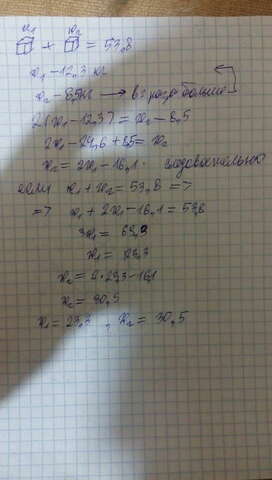 x₁ x₂
+ = 53,8
x₁ - 12,3 кг
x₂ - 8,5кг → в 2 раза больше
2(x₁ - 12,3) = x₂ - 8,5
2x₁ - 24,6 + 8,5 = x₂
x₂ = 2x₁ - 16,1. следовательно
если x₁ + x₂ = 53,8 =>
=> x₁ + 2x₁ - 16,1 = 53,8
3x₁ = 69,9
x₁ = 23,3
x₂ = 2·23,3 - 16,1
x₂ = 30,5
x₁ = 23,3, x₂ = 30,5